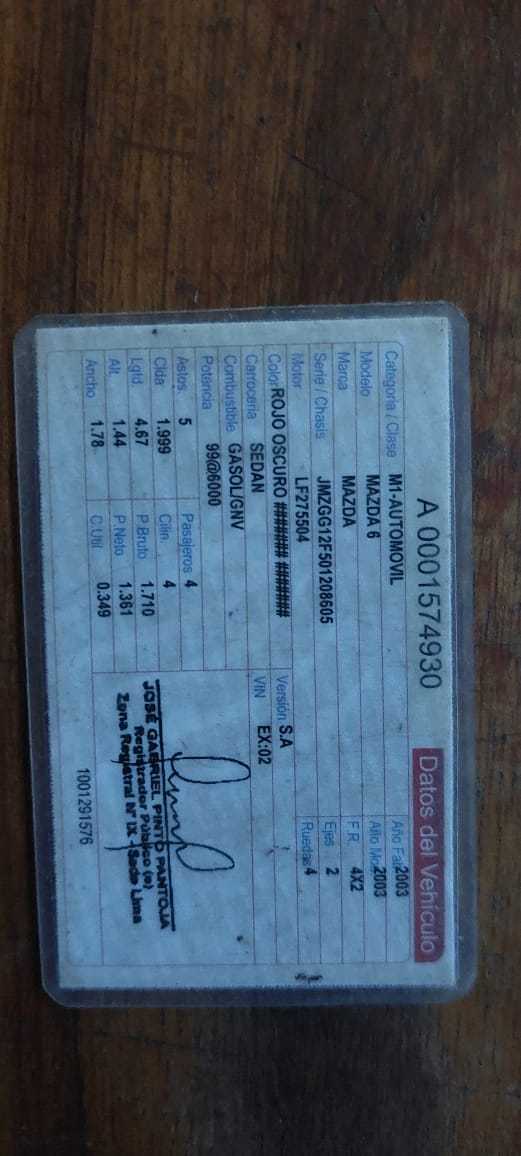 A 0001574930 Datos del Vehículo
Categoria / Clase M1-AUTOMOVIL Año Fab 2003
Modelo MAZDA 6 Año Mo 2003
Marca MAZDA F.R. 4X2
Serie / Chasis JMZGG12F501208605 Ejes 2
Motor LF275504 Ruedas 4
Color ROJO OSCURO ####### ####### Versión S.A
Carrocería SEDAN VIN EX:02
Combustible GASOL/GNV
Potencia 99@6000
Astos. 5 Pasajeros 4
Clda 1.999 Cilin. 4
Lgtd 4.67 P.Bruto 1.710
Alt. 1.44 P.Neto 1.361
Ancho 1.78 C.Util 0.349
JOSÉ GABRIEL PINTO PANTOJA
Registrador Público (e)
Zona Registral N° IX - Sede Lima
1001291576